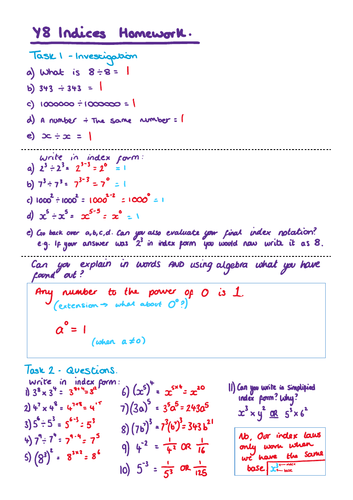 Y8 Indices Homework.
Task 1 - Investigation
a) What is 8÷8 = 1
b) 343 ÷ 343 = 1
c) 1000000 ÷ 1000000 = 1
d) A number ÷ The same number = 1
e) x ÷ x = 1
Write in index form:
a) 2³ ÷ 2³ = 2³⁻³ = 2⁰ = 1
b) 7³ ÷ 7³ = 7³⁻³ = 7⁰ = 1
c) 1000² ÷ 1000² = 1000²⁻² = 1000⁰ = 1
d) x⁵ ÷ x⁵ = x⁵⁻⁵ = x⁰ = 1
e) Go back over a,b,c,d. Can you also evaluate your final index notation?
e.g. If your answer was 2³ in index form you would now write it as 8.
Can you explain in words AND using algebra what you have
found out?
Any number to the power of 0 is 1.
(extension → what about 0⁰?)
a⁰ = 1
(when a≠0)
Task 2 - Questions.
Write in index form:
1) 3⁸ × 3⁴ =
2) 4³ × 4⁸ =
3) 6⁶ ÷ 5³ = 5³
4) 7⁹ ÷ 7⁴ = 7⁹⁻⁴ = 7⁵
5) (8³)² = 8³ˣ² = 8⁶
6) (x⁵)⁴ = x⁵ˣ⁴ = x²⁰
7) (3a)⁵ = 3⁵a⁵ = 243a⁵
8) (7b⁷)³ = 7³(b⁷)³ = 343b²¹
9) 4⁻² = 1/4² OR 1/16
10) 5⁻³ = 1/5³ OR 1/125
11) Can you write in simplified
index form? Why?
x³ × y² OR 5³ × 6²
No, Our index laws
only work when
we have the same
base